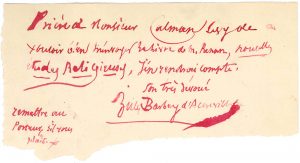 Prière à Monsieur Calman Levy de
vouloir bien m'envoyer le livre de M. Renan, nouvelles
Études Religieuses, J'en rendrai compte.
Son très dévoué
Jules Barbey d'Aurevilly
remettre au
Porteur s'il vous
plait.